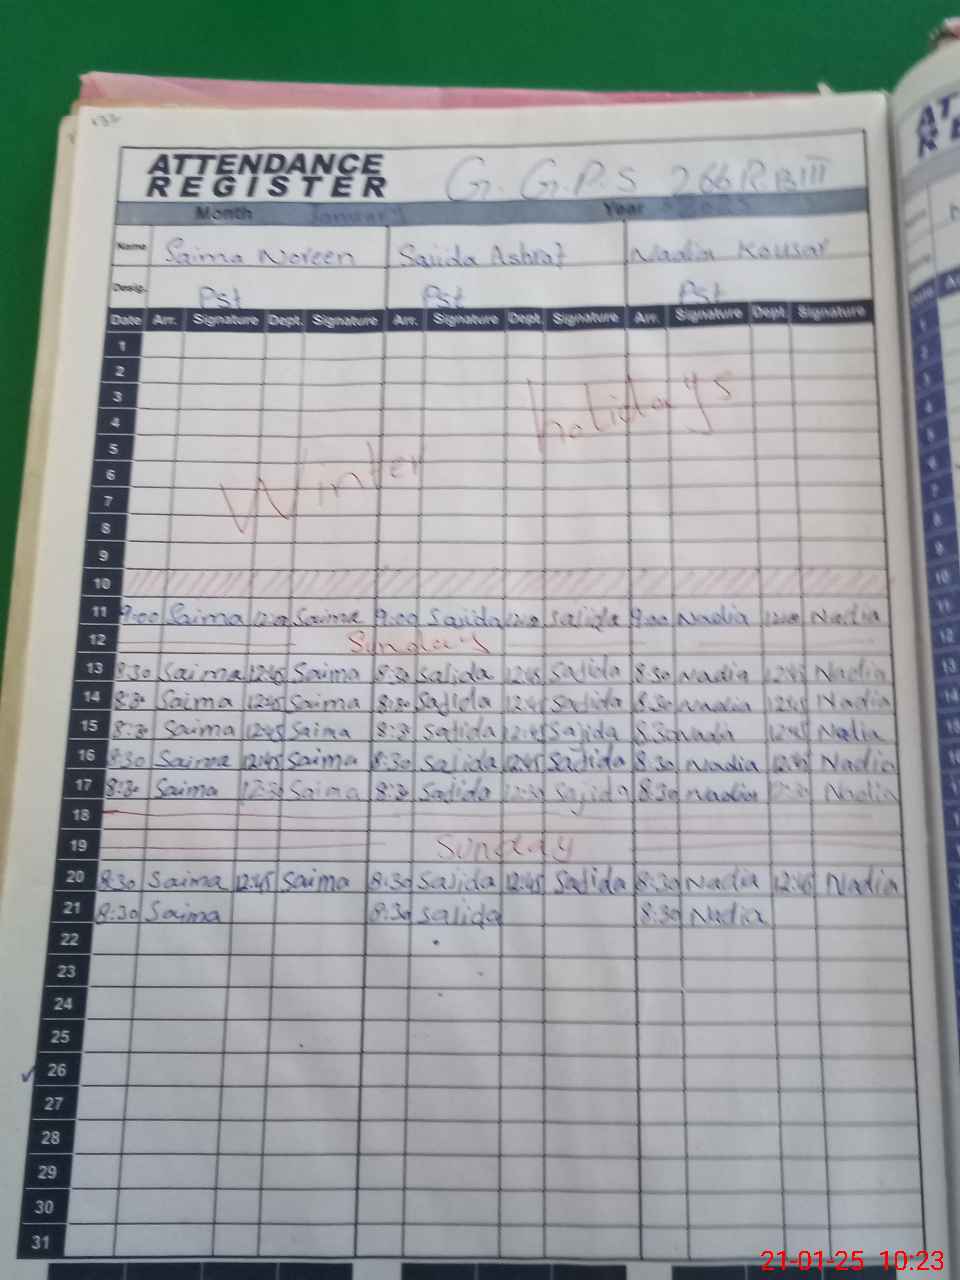 ATTENDANCE
REGISTER
G.G.P.S 266 R.B III
Month January Year 2025
Name Saima Noreen Sajida Ashraf Nadia Kousar
Desig. Pst Pst Pst
Date Arr. Signature Dept. Signature Arr. Signature Dept. Signature Arr. Signature Dept. Signature
1
2
3 holidays
4
5
6 Winter
7
8
9
10
11 9:00 Saima 12:00 Saima 9:00 Sajida 12:00 Sajida 9:00 Nadia 12:00 Nadia
12 Sunday
13 8:30 Saima 12:45 Saima 8:30 Sajida 12:45 Sajida 8:30 Nadia 12:45 Nadia
14 8:30 Saima 12:45 Saima 8:30 Sajida 12:45 Sajida 8:30 Nadia 12:45 Nadia
15 8:30 Saima 12:45 Saima 8:30 Sajida 12:45 Sajida 8:30 Nadia 12:45 Nadia
16 8:30 Saima 12:45 Saima 8:30 Sajida 12:45 Sajida 8:30 Nadia 12:45 Nadia
17 8:30 Saima 12:30 Saima 8:30 Sajida 12:30 Sajida 8:30 Nadia 12:30 Nadia
18
19 Sunday
20 8:30 Saima 12:45 Saima 8:30 Sajida 12:45 Sajida 8:30 Nadia 12:45 Nadia
21 8:30 Saima 8:30 Sajida 8:30 Nadia
22
23
24
25
26
27
28
29
30
31
21-01-25 10:23